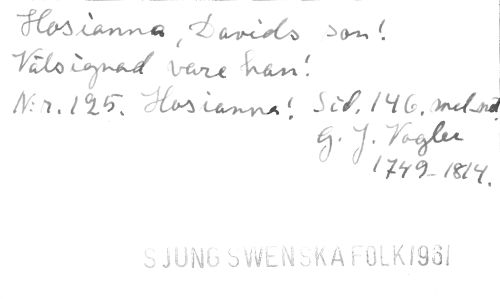 Hosianna, Davids son!
Välsignad vare han!
N:r. 125. Hosianna! Sid. 146. mel. not.
G. J. Vogler
1749-1814.
SJUNG SWENSKA FOLK 1961